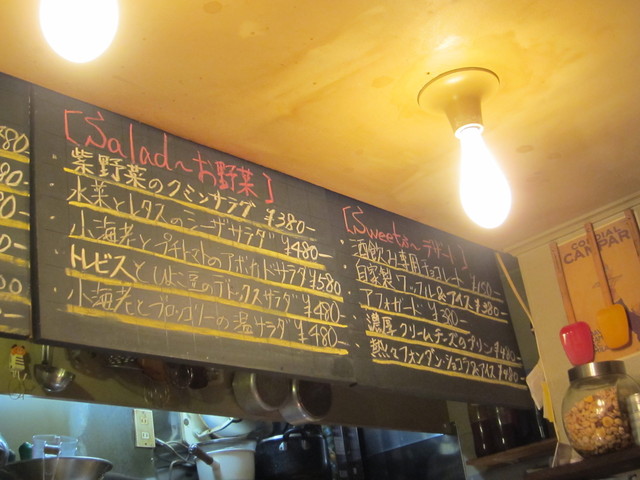 80-
90-
0-
0-
[Salad〜お野菜]
・紫野菜のクミンサラダ ¥380-
・水菜とレタスのシーザーサラダ ¥480-
・小海老とプチトマトのアボカドサラダ ¥580
・トレビスとひよこ豆のデトックスサラダ ¥480-
・小海老とブロッコリーの温サラダ ¥480-
[Sweets〜デザート]
・酒飲み専用チョコレート ¥150-
・自家製ワッフル&アイス ¥380-
・アフォガード ¥380-
・濃厚クリームチーズのプリン ¥480-
・熱々フォンダンショコラ&アイス ¥480-
CORDIAL
CAMPARI